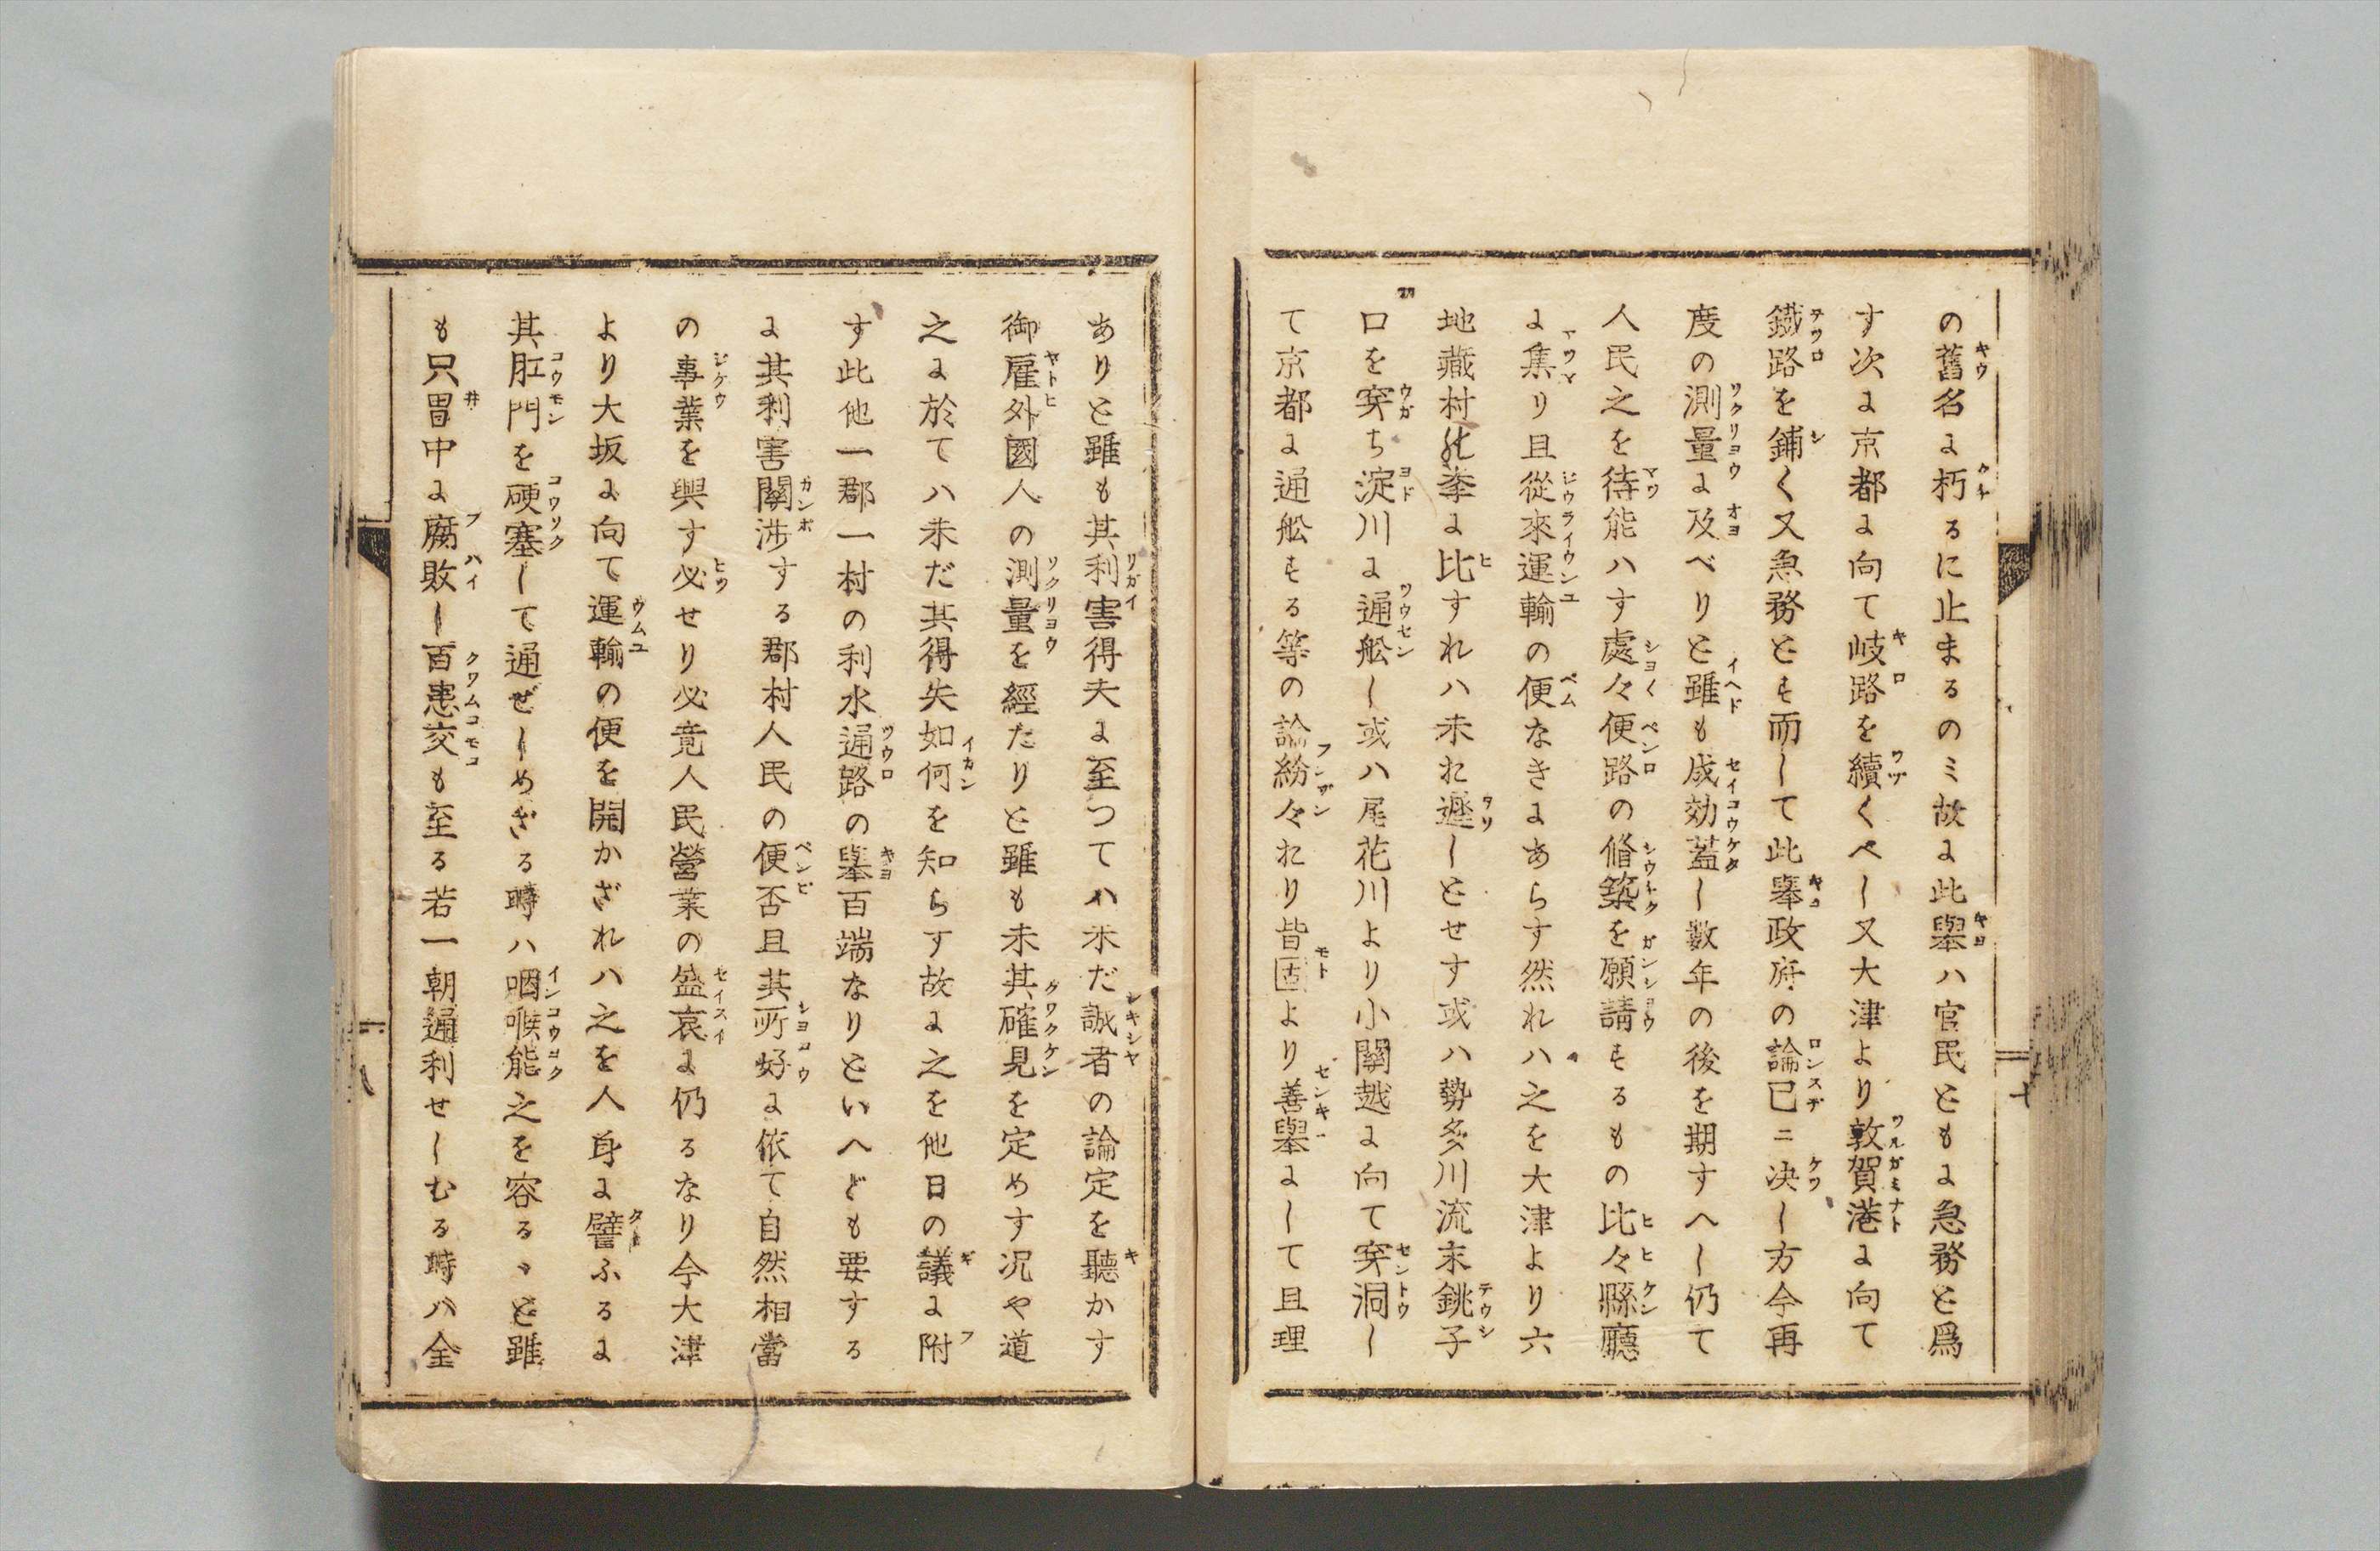 の舊名に朽るに止まるのミ故に此舉ハ官民ともに急務と爲
す次に京都に向て岐路を續くべし又大津より敦賀港に向て
鐵路を鋪く又急務とす而して此舉政府の論已ニ决し方今再
度の測量に及べりと雖も成効蓋し數年の後を期すへし仍て
人民之を待能ハす處々便路の脩築を願請するもの比々縣廳
に集り且從來運輸の便なきにあらす然れハ之を大津より六
地藏村の牽に比すれハ未た遅しとせす或ハ勢多川流末銚子
口を穿ち淀川に通舩し或ハ尾花川より小關越に向て穿洞し
て京都に通舩する等の論紛々たり皆固より善舉にして且理
ありと雖も其利害得失に至つてハ未だ識者の論定を聽かす
御雇外國人の測量を經たりと雖も未其確見を定めす况や道
之に於てハ未だ其得失如何を知らす故に之を他日の議に附
す此他一郡一村の利水通路の舉百端なりといへども要する
に其利害關渉する郡村人民の便否且其所好に依て自然相當
の事業を興す必せり必竟人民營業の盛衰に仍るなり今大津
より大坂に向て運輸の便を開かざれハ之を人身に譬ふるに
其肛門を硬塞して通ぜしめざる時ハ咽喉能之を容るゝと雖
も只胃中に腐敗し百患交も至る若一朝通利せしむる時ハ全
十